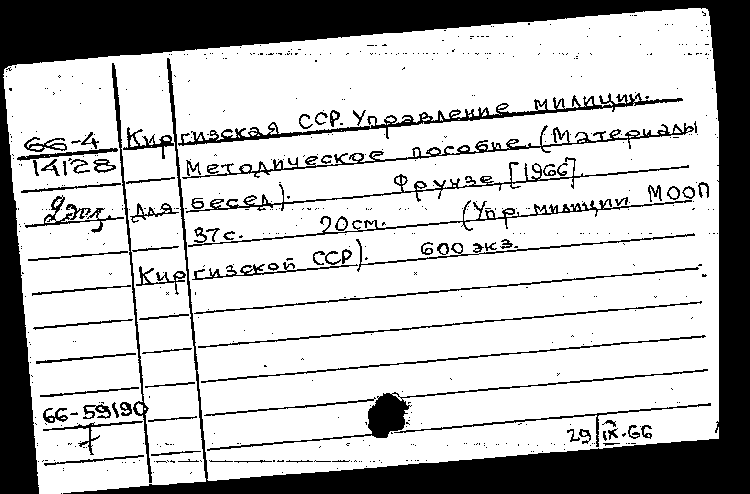 66-4 Киргизская ССР. Управление милиции.
14128 Методическое пособие. (Материалы
2 экз. для бесед). Фрунзе, [1966].
37с. 20см. (Упр. милиции МООП
Киргизской ССР). 600 экз.
66-59190
29/IX-66